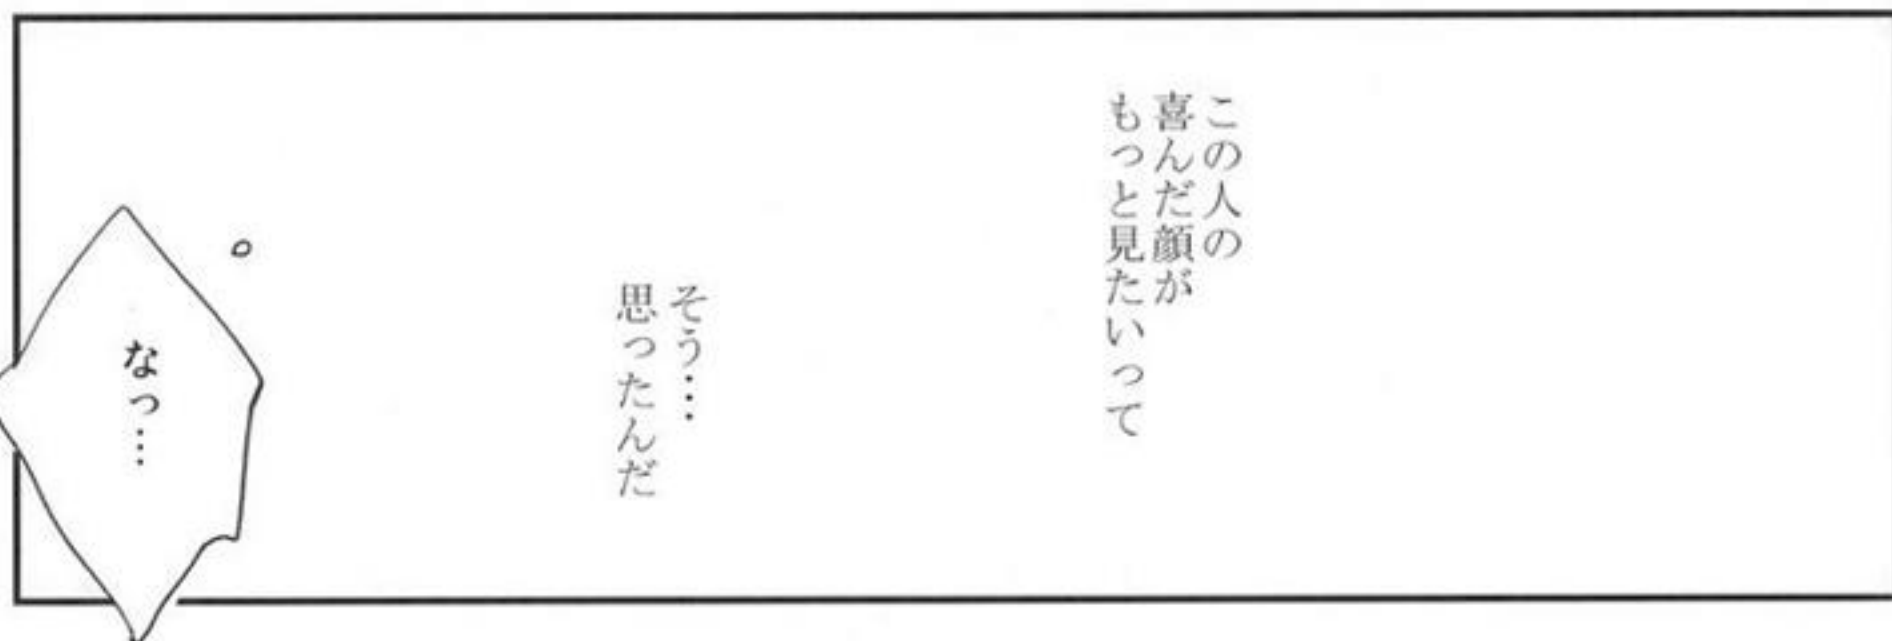 この人の
喜んだ顔が
もっと見たいって
そう・・・
思ったんだ
なっ…